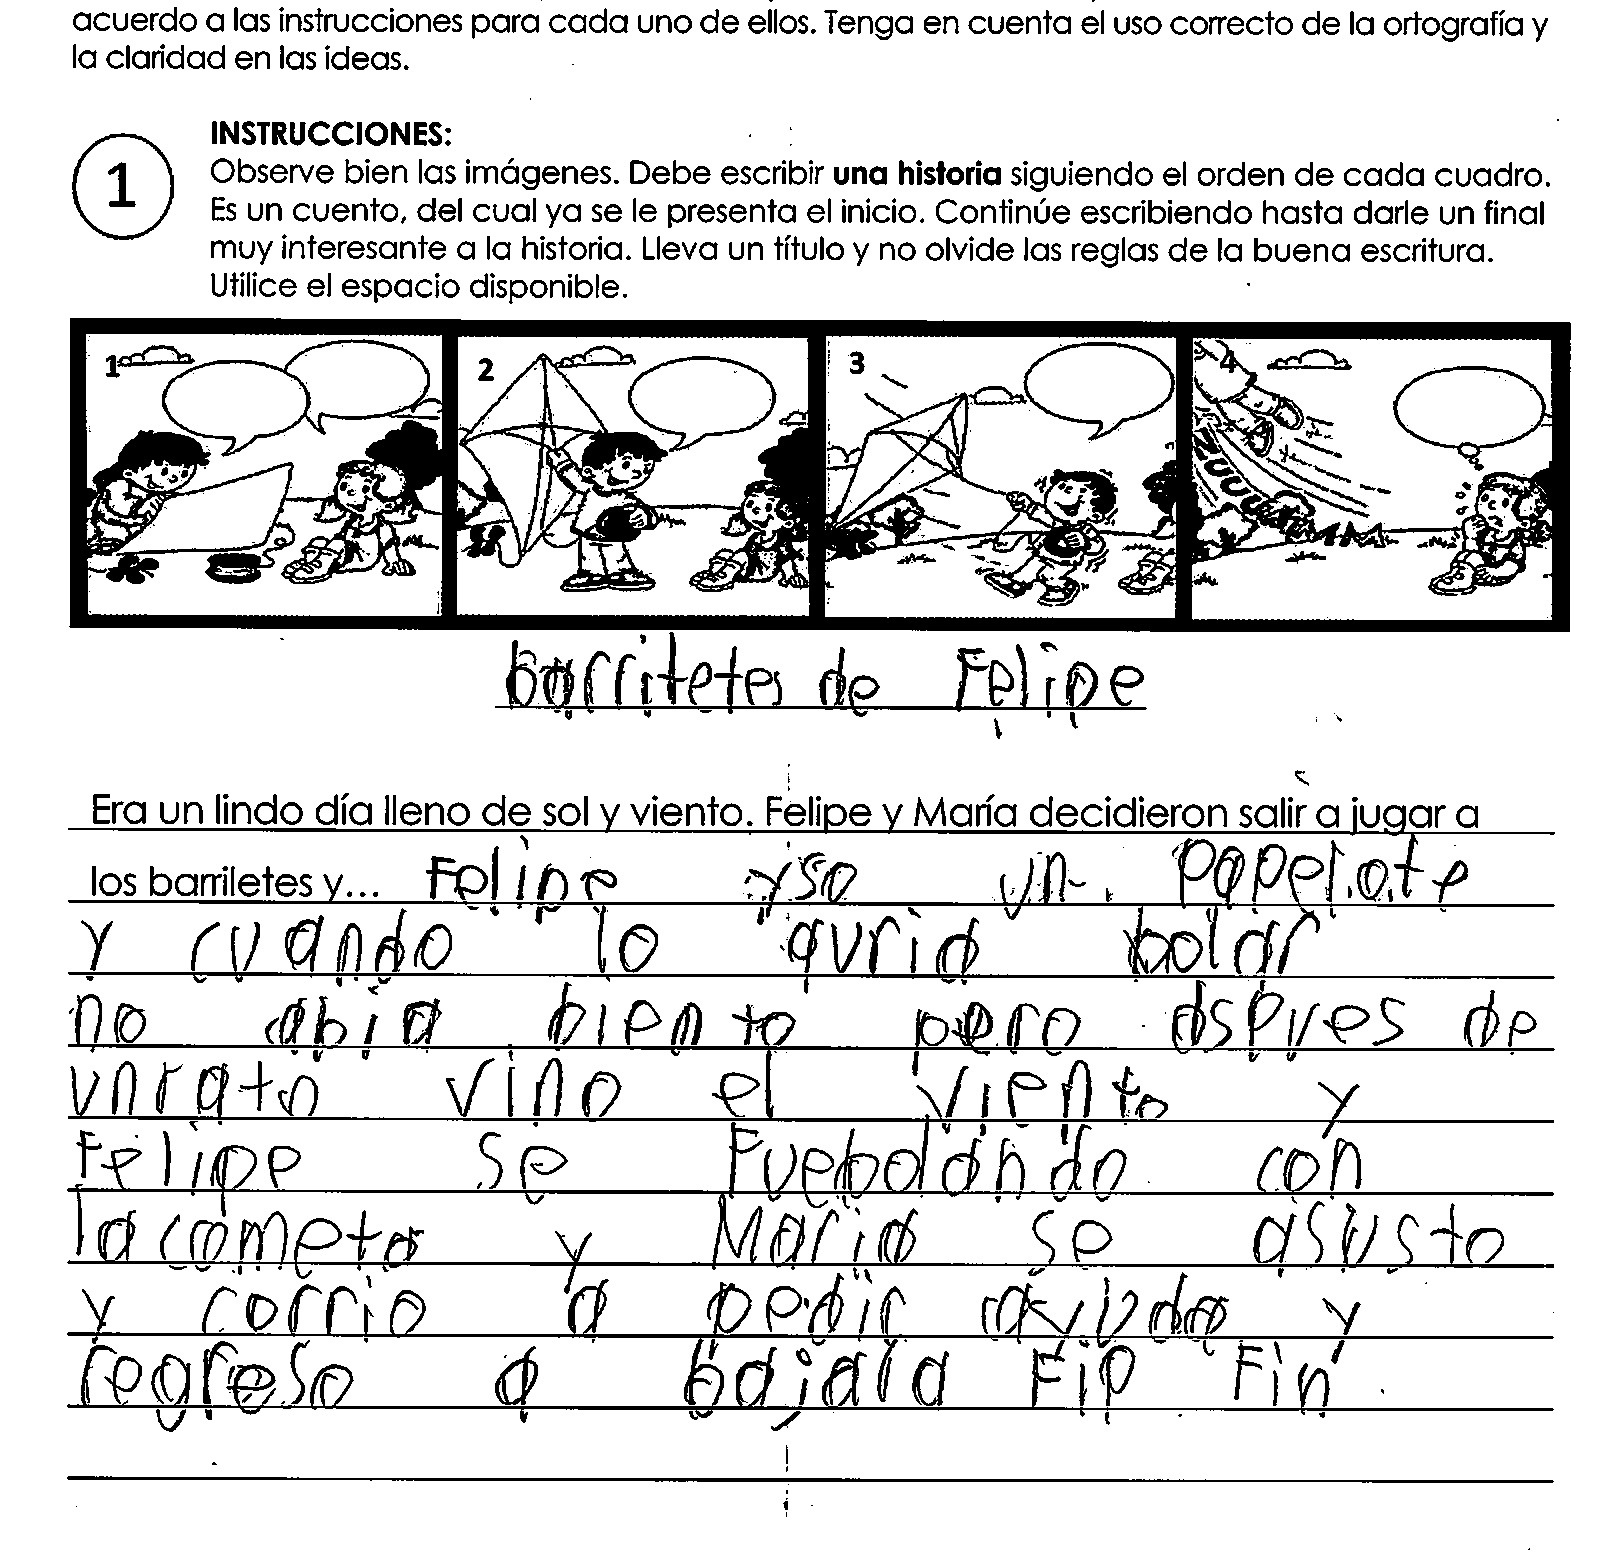 acuerdo a las instrucciones para cada uno de ellos. Tenga en cuenta el uso correcto de la ortografía y
la claridad en las ideas.
1
INSTRUCCIONES:
Observe bien las imágenes. Debe escribir una historia siguiendo el orden de cada cuadro.
Es un cuento, del cual ya se le presenta el inicio. Continúe escribiendo hasta darle un final
muy interesante a la historia. Lleva un título y no olvide las reglas de la buena escritura.
Utilice el espacio disponible.
1 2 3 4
barritetes de Felipe
Era un lindo día lleno de sol y viento. Felipe y María decidieron salir a jugar a
los barriletes y... Felipe yso un papelote
y cuando lo quria bolar
no abia biento pero dspues de
un rato vino el viento y
Felipe se Fue bolando con
la cometa y Maria se asusto
y corrio a pedir ayuda y
regreso a bajala Fip Fin